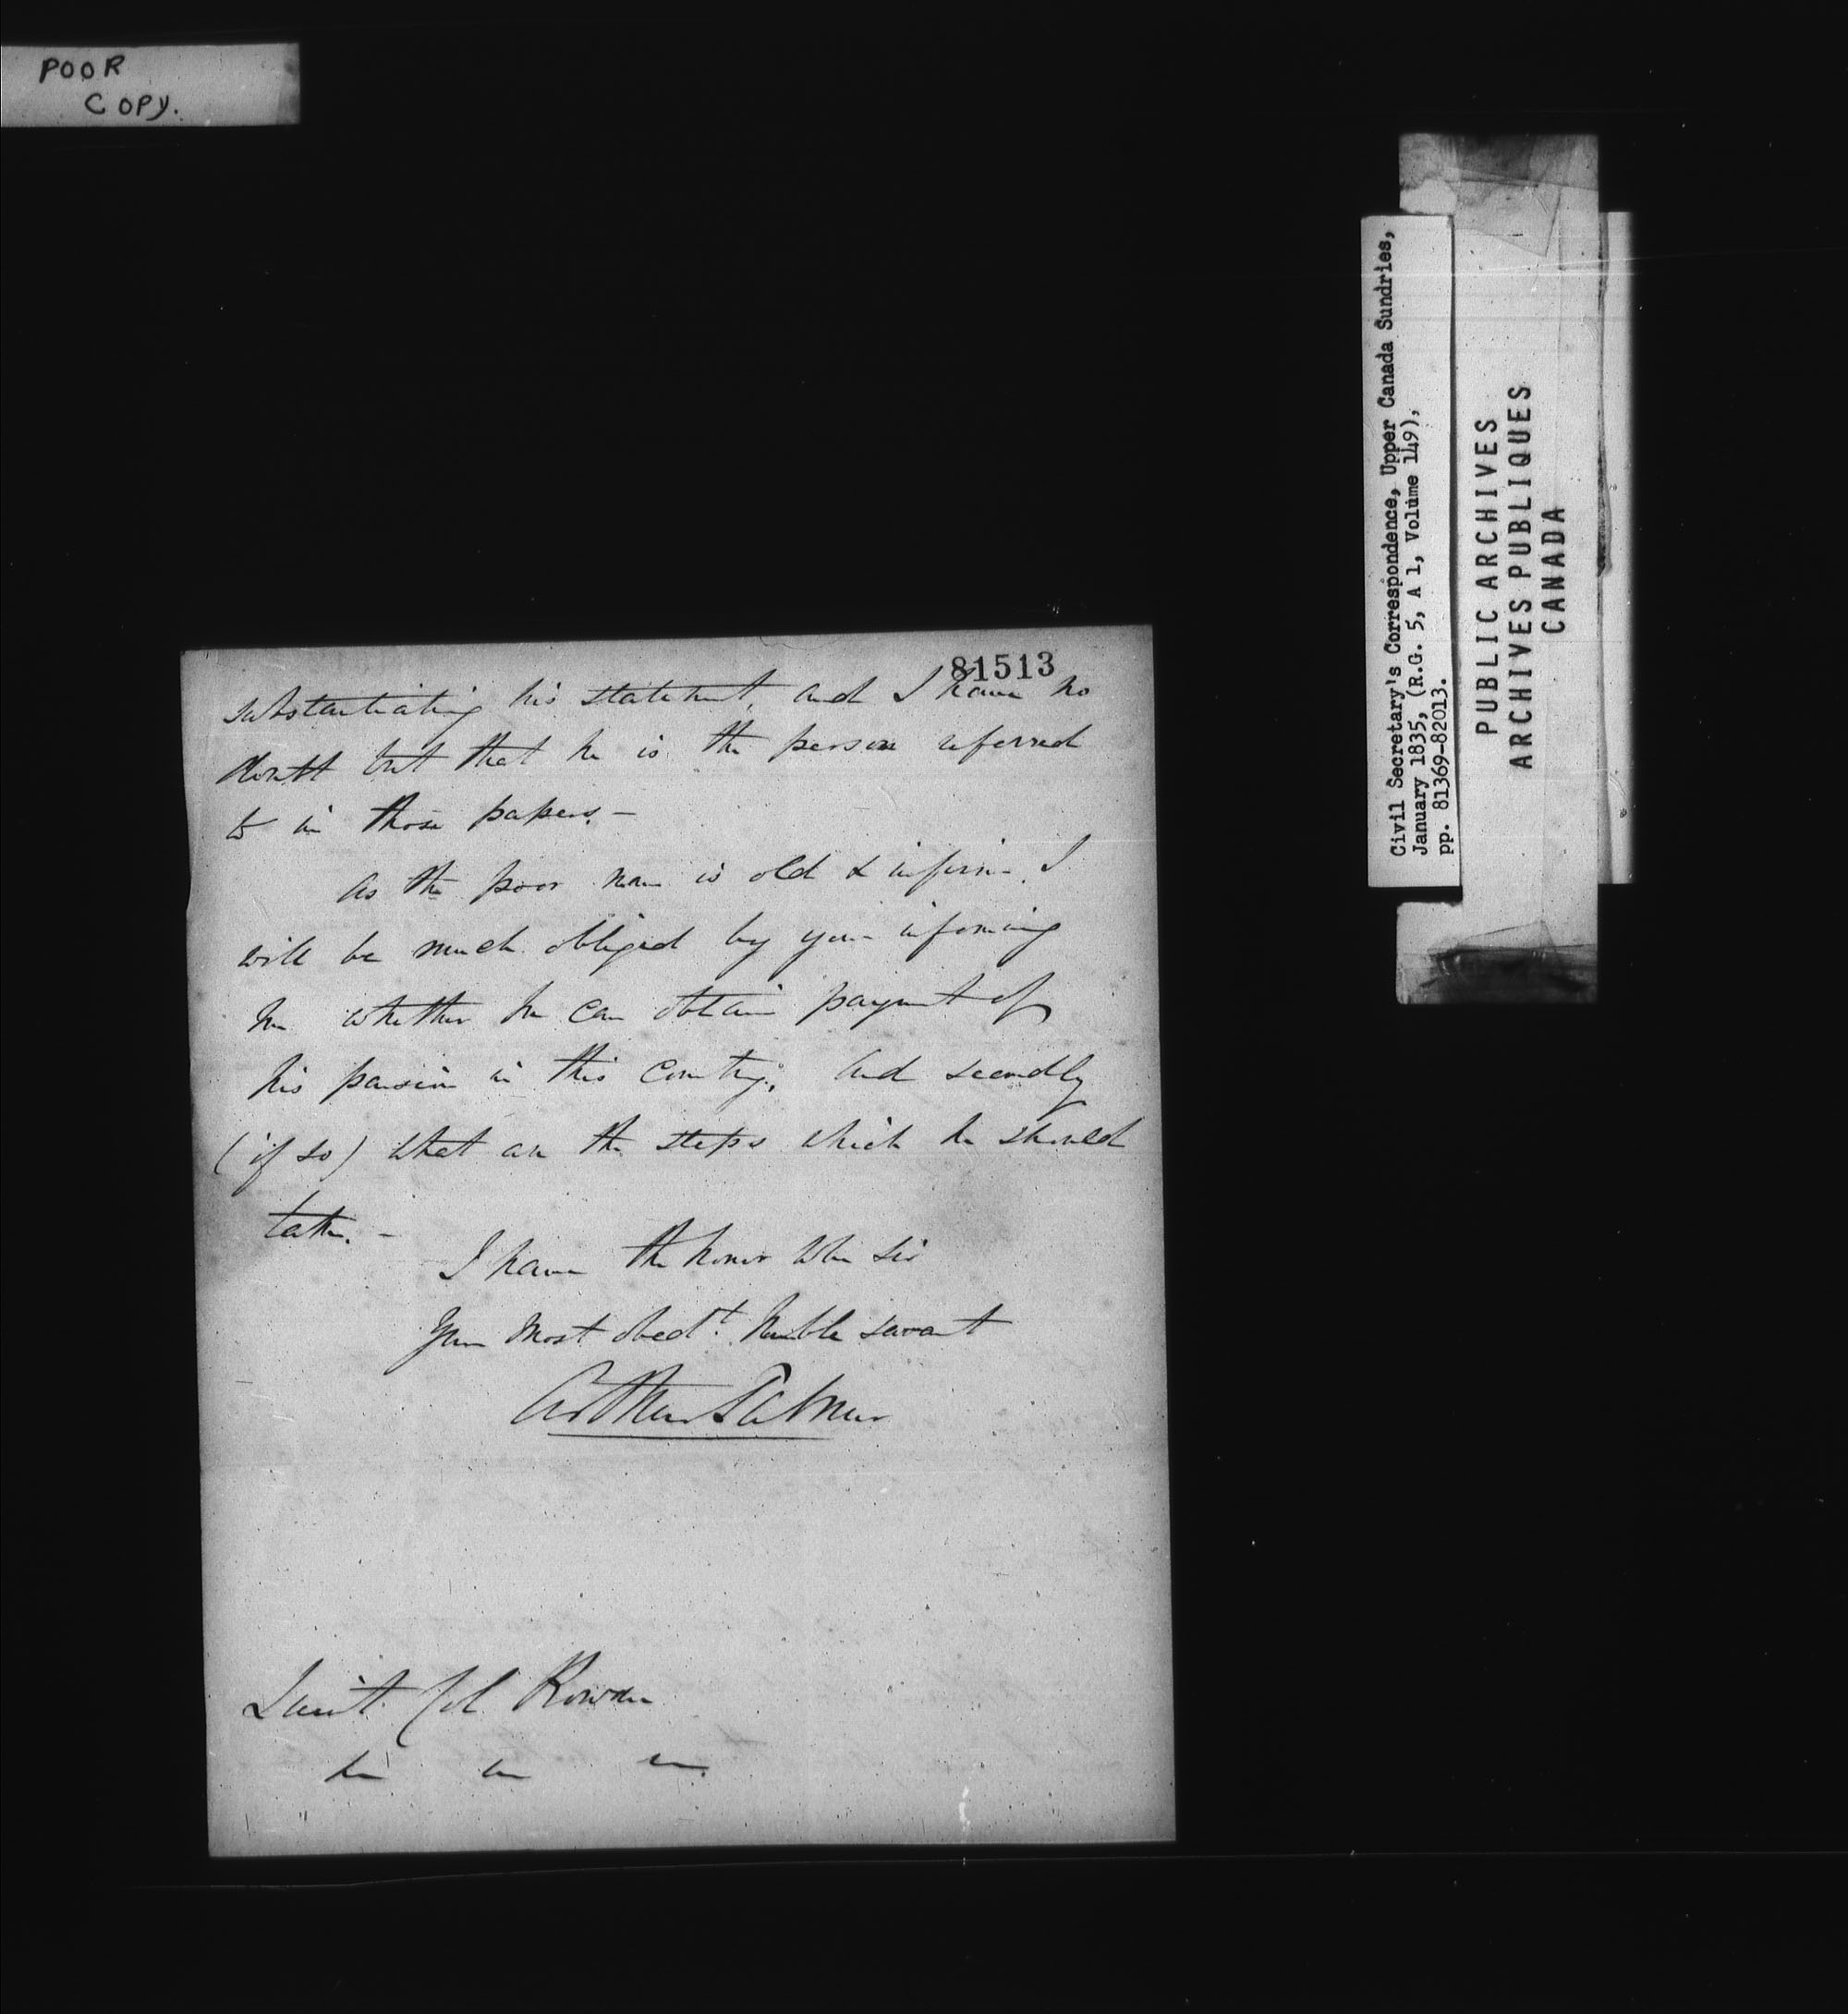 POOR
COPY.
81513
substantiating his statement, and I have no
doubt but that he is the person referred
to in those papers. —
As the poor man is old & infirm. I
will be much obliged by your informing
me whether he can obtain payment of
his pension in this country, and secondly
(if so) what are the steps which he should
take. —
I have the honor to be Sir
Your most obedt. humble servant
Arthur Palmer
Lieut. Col Rowan
Civil Secretary's Correspondence, Upper Canada Sundries,
January 1835, (R.G. 5, A 1, Volume 149),
pp. 81369-82013.
PUBLIC ARCHIVES
ARCHIVES PUBLIQUES
CANADA